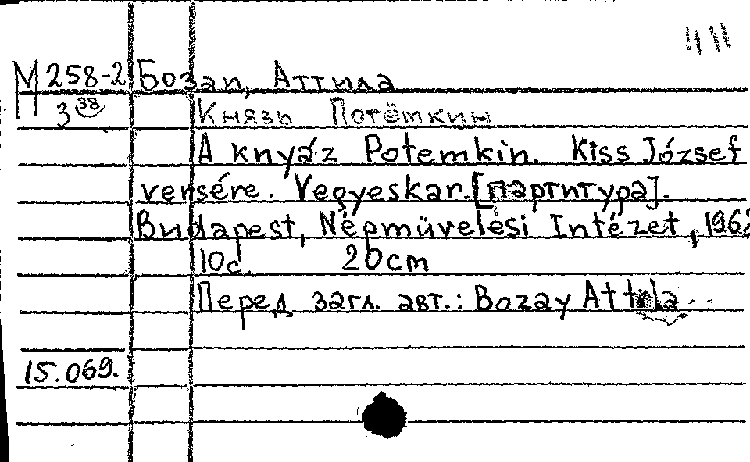 М 258-2 Бозаи, Аттила
3 38 Князь Потёмкин
A knyáz Potemkin. Kiss József
versére. Vegyeskar. [партитура].
Budapest, Népmüvelési Intézet, 196
10с. 20cm
Перед загл. авт.: Bozay Attila
15.069.